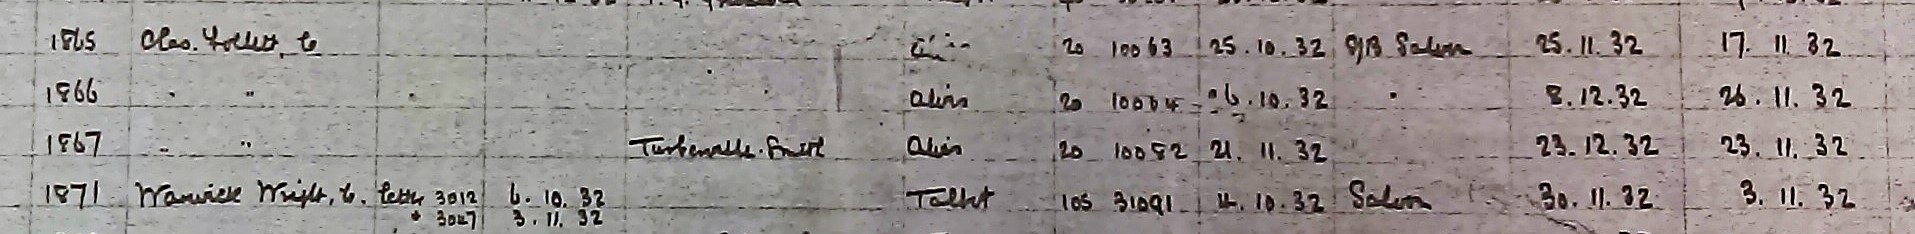 1865 Chas. Follett, Co Alvis 20 10063 25.10.32 S/B Saloon 25.11.32 17.11.32
1866 " " " Alvis 20 10064 26.10.32 " 8.12.32 26.11.32
1867 " " Turbervelle. Smith Alvis 20 10082 21.11.32 23.12.32 23.11.32
1871 Warwick Wright, Co. letter 3012 6.10.32 Talbot 105 31091 14.10.32 Saloon 30.11.32 3.11.32
" 3027 3.11.32